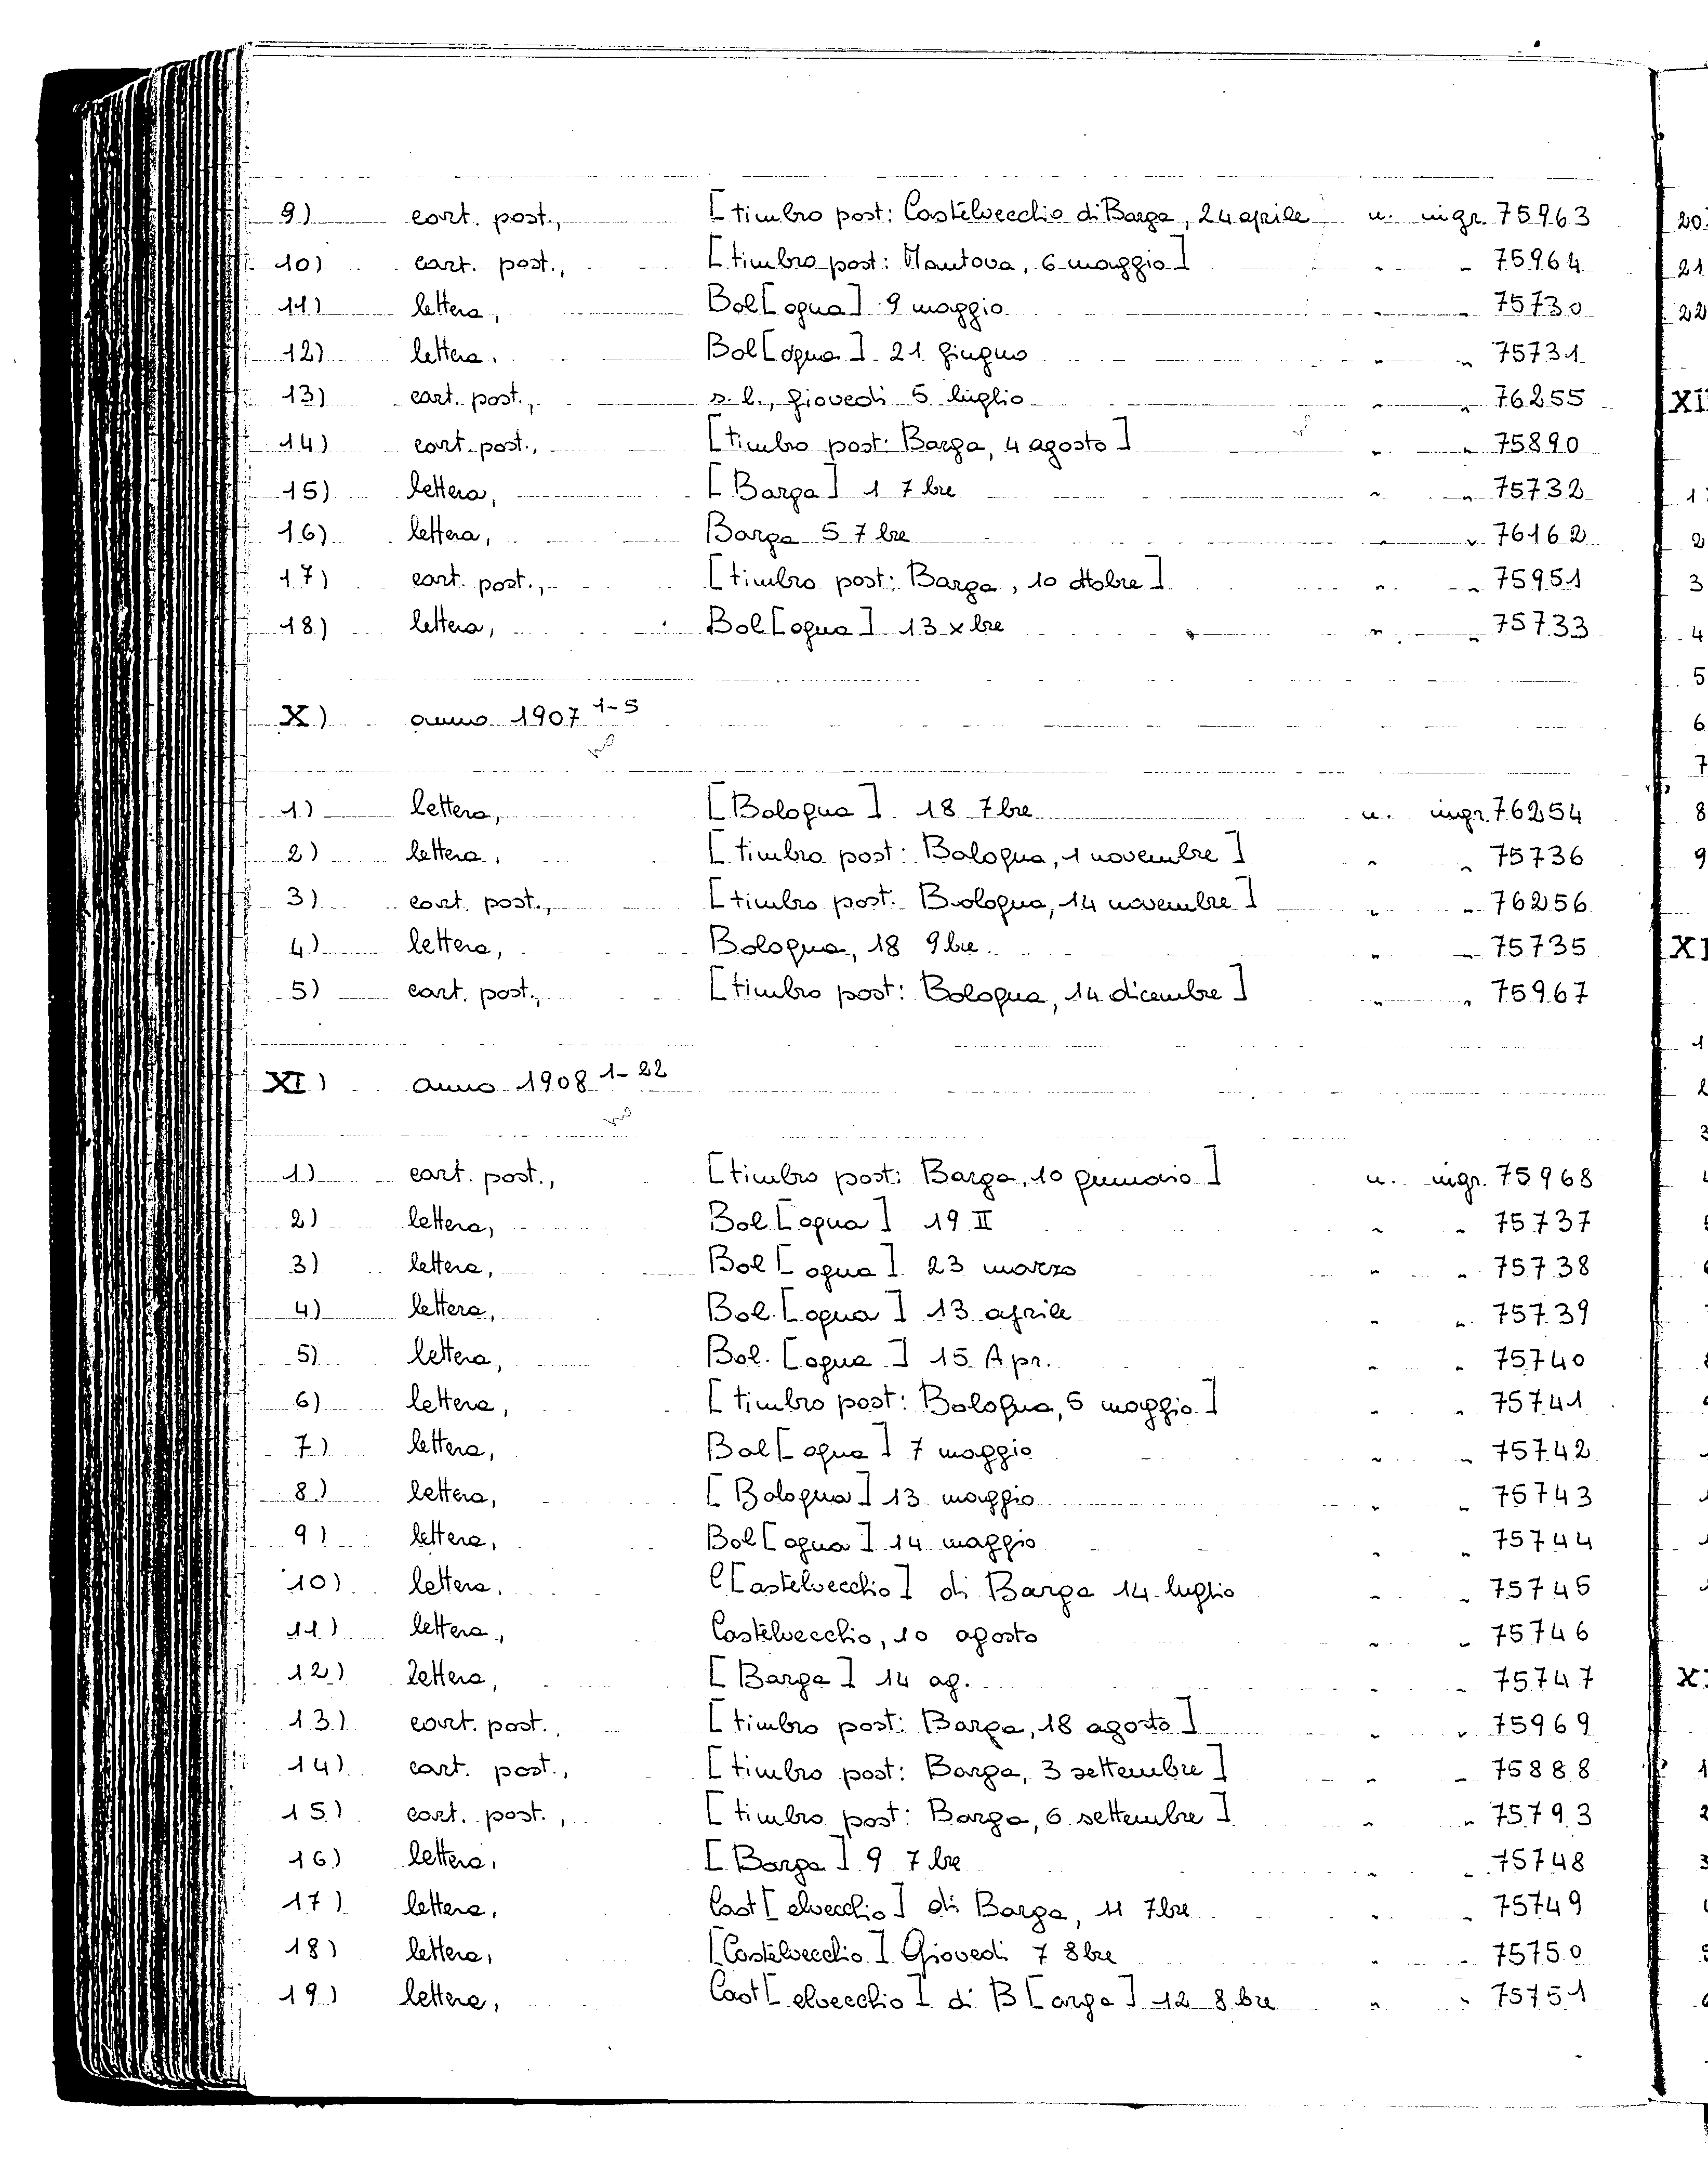 9) cart. post., [timbro post: Castelvecchio di Barga, 24 aprile n. ingr. 75963
10) cart. post., [timbro post: Mantova, 6 maggio] " " 75964
11) lettera, Bol[ogna] 9 maggio " " 75730
12) lettera, Bol[ogna] 21 giugno " " 75731
13) cart. post., s. l., giovedì 5 luglio " " 76255
14) cart. post., [timbro post: Barga, 4 agosto] " " 75890
15) lettera, [Barga] 1 7bre " " 75732
16) lettera, Barga 5 7bre " " 76162
17) cart. post., [timbro post: Barga, 10 ottobre] " " 75951
18) lettera, Bol[ogna] 13 xbre " " 75733
X) anno 1907 1-5
1) lettera, [Bologna] 18 7bre n. ingr. 76254
2) lettera, [timbro post: Bologna, 1 novembre] " " 75736
3) cart. post., [timbro post: Bologna, 14 novembre] " " 76256
4) lettera, Bologna, 18 9bre. " " 75735
5) cart. post., [timbro post: Bologna, 14 dicembre] " " 75967
XI) anno 1908 1-22
1) cart. post., [timbro post: Barga, 10 gennaio] n. ingr. 75968
2) lettera, Bol[ogna] 19 II " " 75737
3) lettera, Bol[ogna] 23 marzo " " 75738
4) lettera, Bol.[ogna] 13 aprile " " 75739
5) lettera, Bol.[ogna] 15 Apr. " " 75740
6) lettera, [timbro post: Bologna, 5 maggio] " " 75741
7) lettera, Bol[ogna] 7 maggio " " 75742
8) lettera, [Bologna] 13 maggio " " 75743
9) lettera, Bol[ogna] 14 maggio " " 75744
10) lettera, C[astelvecchio] di Barga 14 luglio " " 75745
11) lettera, Castelvecchio, 10 agosto " " 75746
12) lettera, [Barga] 14 ag. " " 75747
13) cart. post., [timbro post: Barga, 18 agosto] " " 75969
14) cart. post., [timbro post: Barga, 3 settembre] " " 75888
15) cart. post., [timbro post: Barga, 6 settembre] " " 75793
16) lettera, [Barga] 9 7bre " " 75748
17) lettera, Cast[elvecchio] di Barga, 11 7bre " " 75749
18) lettera, [Castelvecchio] Giovedì 7 8bre " " 75750
19) lettera, Cast[elvecchio] di B[arga] 12 8bre " " 75751